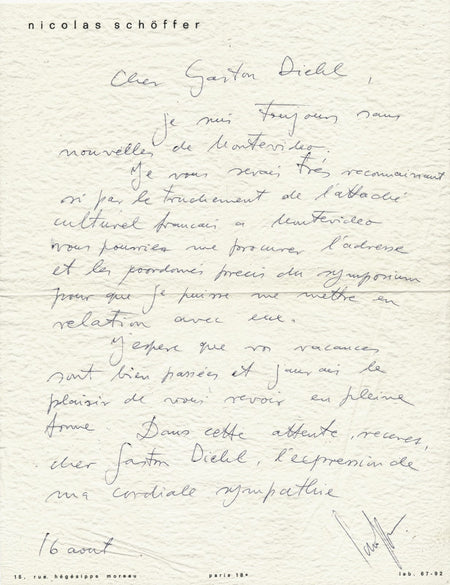 nicolas schöffer
Cher Gaston Diehl,
je suis toujours sans
nouvelles de Montevideo.
Je vous serais très reconnaissant
si par le truchement de l'attaché
culturel francais a Montevideo
vous pourriez me procurer l'adresse
et les coordonés precis du symposium
pour que je puisse me mettre en
relation avec eux.
J'espere que vos vacances
sont bien passées et j'aurais le
plaisir de vous revoir en pleine
forme Dans cette attente, recevez,
cher Gaston Diehl, l'expression de
ma cordiale sympathie
16 aout
15, rue, hégésippe moreau paris 18e lab. 67-92